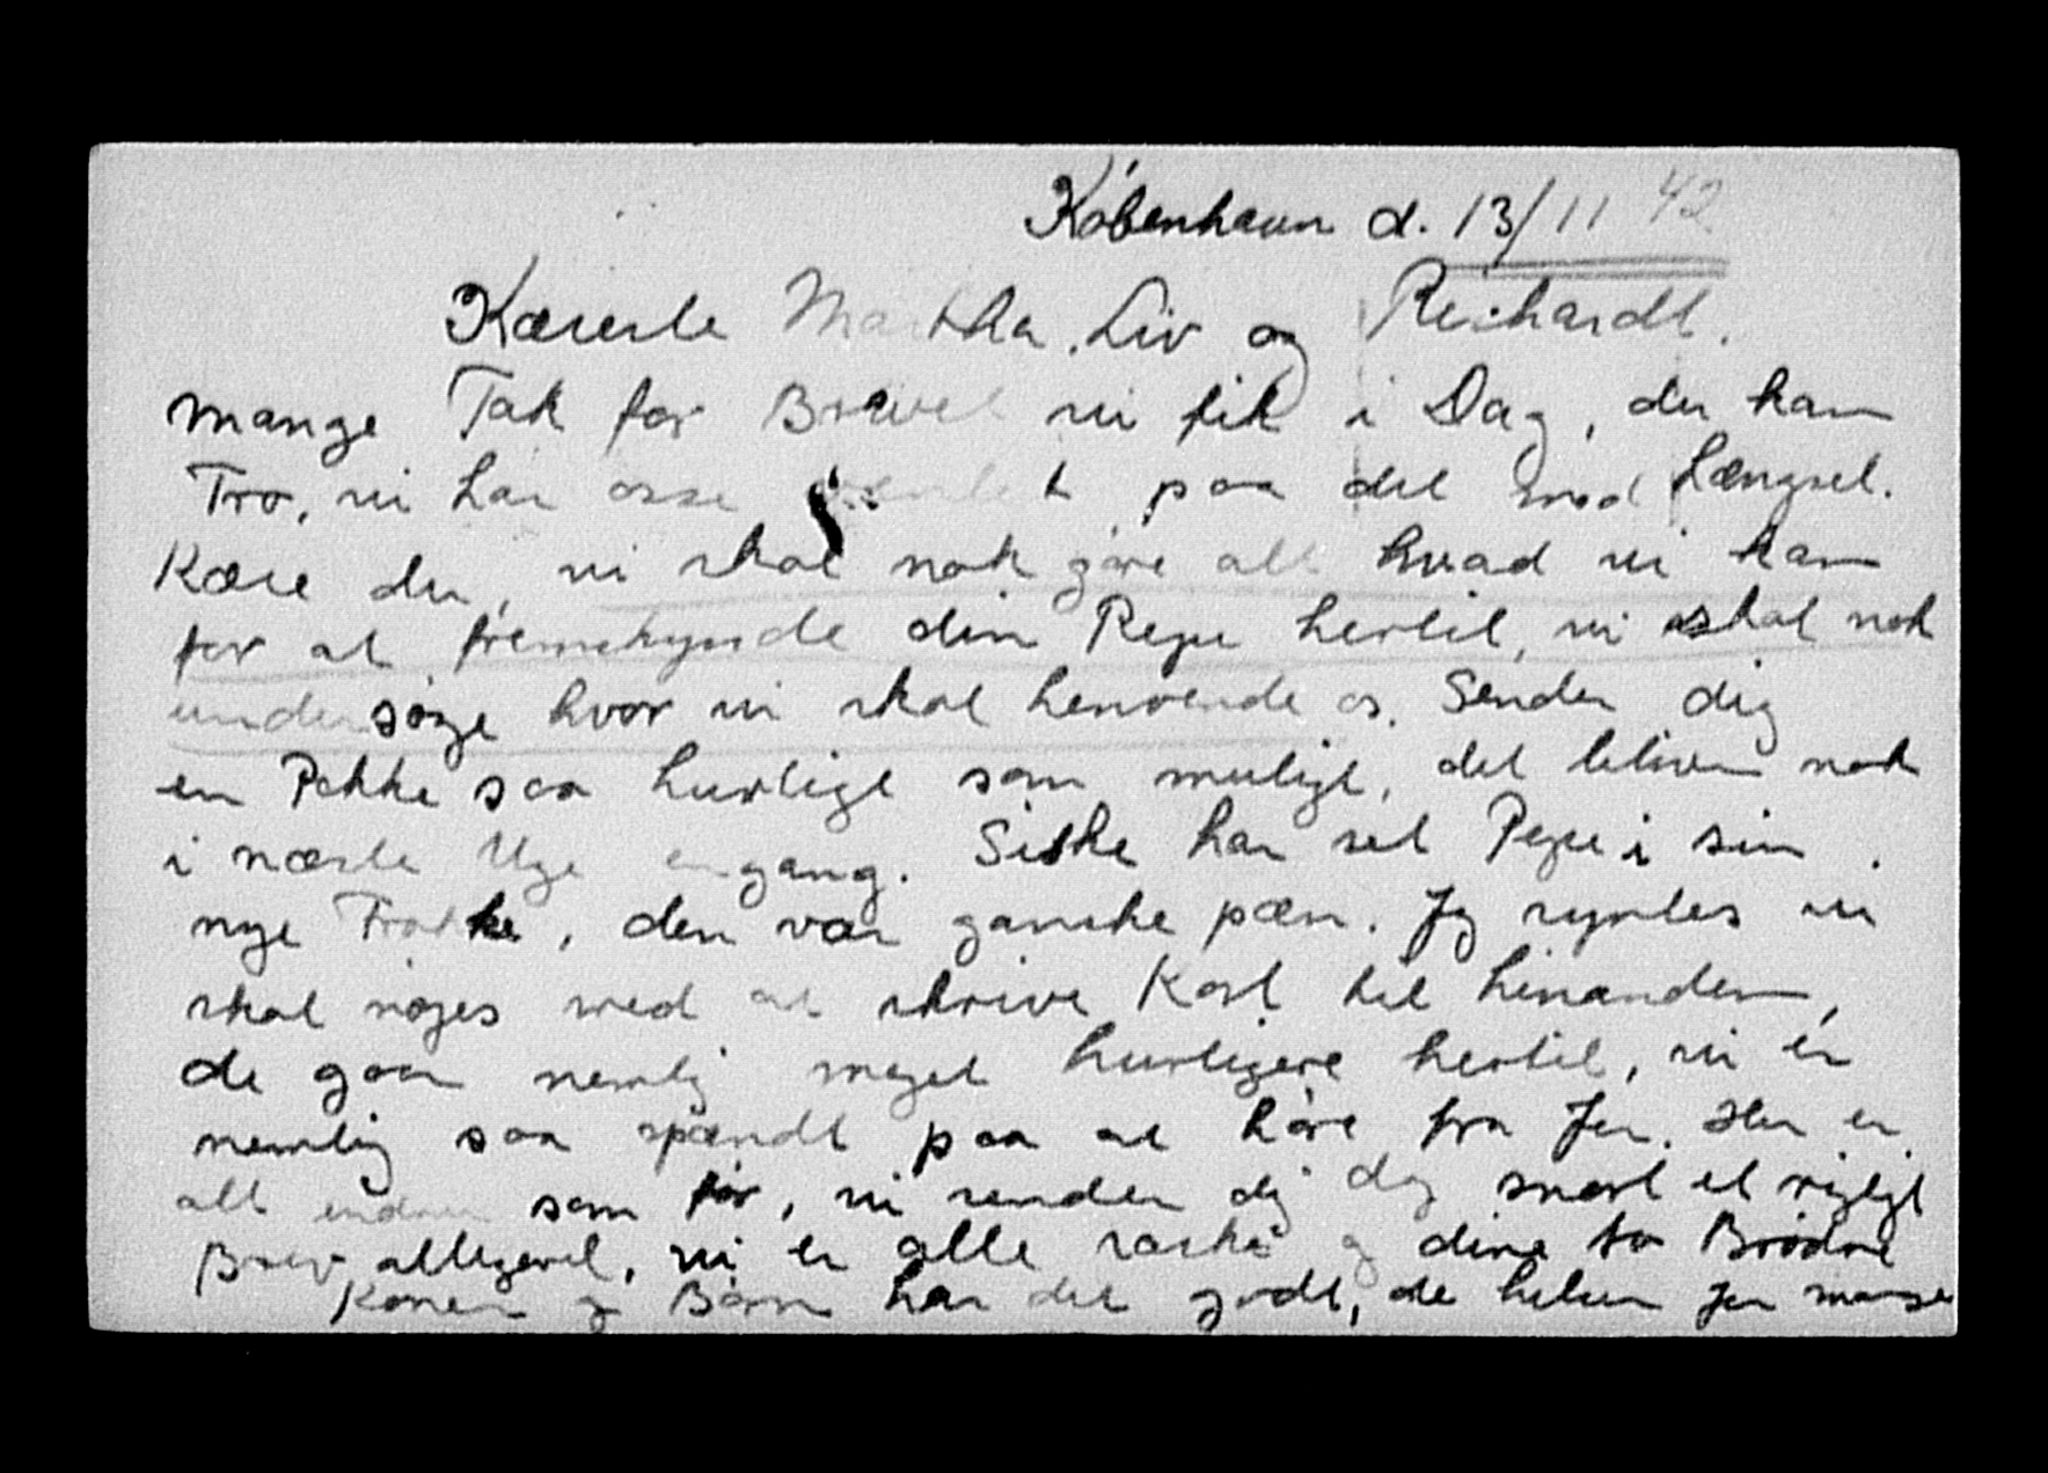 København d. 13/11 42
Kæreste Martha, Liv og Reichardt.
mange Tak for Brevet vi fik i Dag, du kan
Tro, vi har osse ventet paa det med Længsel.
Kære du, vi skal nok gøre alt hvad vi kan
for at fremskynde din Rejse hertil, vi skal nok
undersøge hvor vi skal henvende os. Sender dig
en Pakke saa hurtigt som muligt, det bliver nok
i næste Uge engang. Siske har set Peju i sin
nye Frakke, den var ganske pæn. Jeg syntes vi
skal nøjes med at skrive Kort til hinanden,
de gaar nemlig meget hurtigere hertil, vi er
nemlig saa spændt paa at høre fra Jer. Her er
alt endnu som før, vi sender dig dog snart et rigtigt
Brev alligevel, vi er alle raske og dine to Brødre
Koner og Børn har det godt, de hilser Jer mange